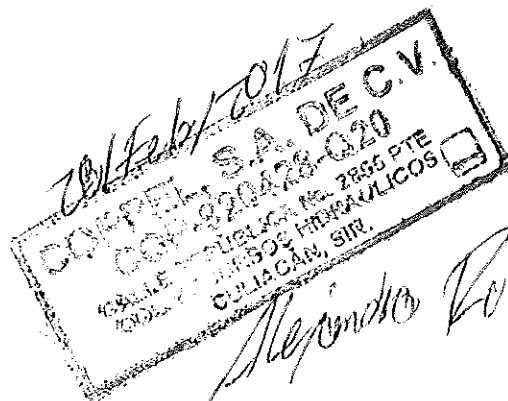 28/Feb/2017
COPPEL S.A. DE C.V.
920428-Q20
CALLE REPUBLICA No. 2855 PTE
RECURSOS HIDRAULICOS
CULIACAN, SIN.
Alejandra